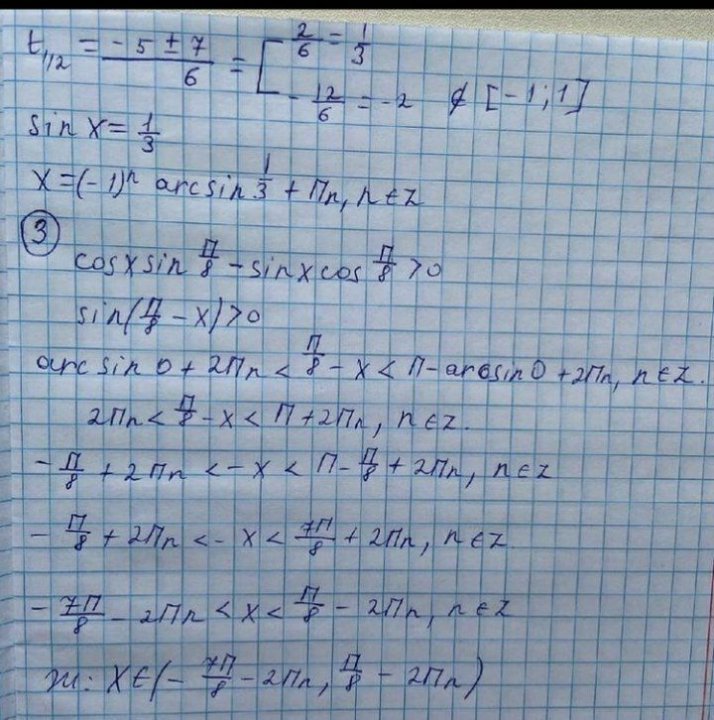 t₁,₂ = (-5 ± 7)/6 = [ 2/6 = 1/3
- 12/6 = -2 ∉ [-1; 1]
sin x = 1/3
x = (-1)ⁿ arcsin 1/3 + Πn, n ∈ Z
③
cos x sin Π/8 - sin x cos Π/8 > 0
sin(Π/8 - x) > 0
arcsin 0 + 2Πn < Π/8 - x < Π - arcsin 0 + 2Πn, n ∈ Z.
2Πn < Π/8 - x < Π + 2Πn, n ∈ Z.
- Π/8 + 2Πn < -x < Π - Π/8 + 2Πn, n ∈ Z
- Π/8 + 2Πn < -x < 7Π/8 + 2Πn, n ∈ Z
- 7Π/8 - 2Πn < x < Π/8 - 2Πn, n ∈ Z
ж: x ∈ (- 7Π/8 - 2Πn, Π/8 - 2Πn)